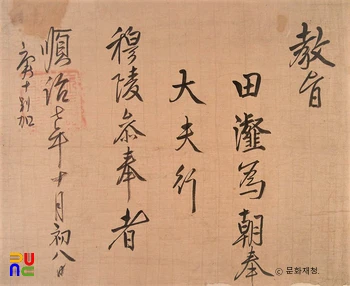 教旨
田為朝奉
大夫行
穆陵叅奉者
順治七年十月初八日
別加
© 문화재청.